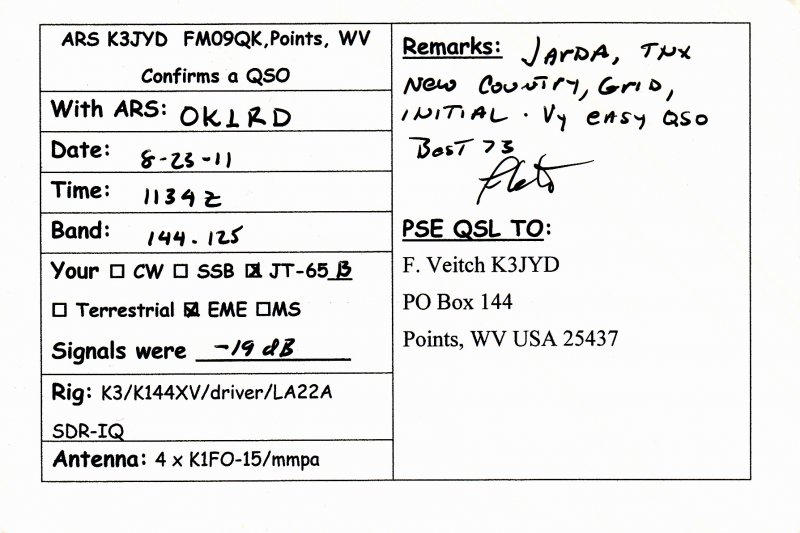 ARS K3JYD FM09QK,Points, WV
Confirms a QSO
With ARS: OK1RD
Date: 8-23-11
Time: 1134 Z
Band: 144.125
Your ☐ CW ☐ SSB ☒ JT-65 B
☐ Terrestrial ☒ EME ☐MS
Signals were -19 dB
Rig: K3/K144XV/driver/LA22A
SDR-IQ
Antenna: 4 x K1FO-15/mmpa
Remarks: JARDA, TNX
NEW COUNTRY, GRID,
INITIAL. Vy EASY QSO
BEST 73
PSE QSL TO:
F. Veitch K3JYD
PO Box 144
Points, WV USA 25437